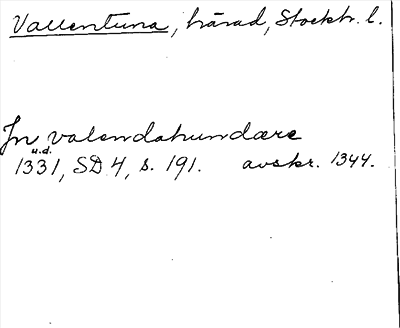 Vallentuna, härad, Stockh. l.
Jn valendahundære
u.d.
1331, SD 4, s. 191. avskr. 1344.